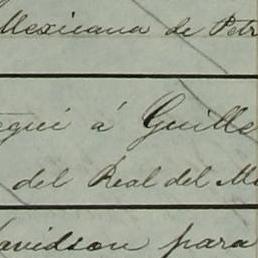 Mexicana de Petr
egué á Guille
del Real del Mo
avidson para